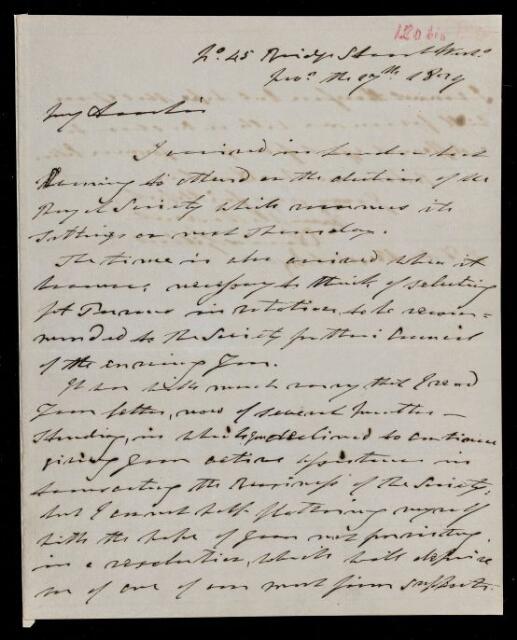 120 bis
No. 45 Bridge Street Westr.
Novr. the 17th 1829
My dear Sir
I arrived in London last
Evening to attend on the elections of the
Royal Society which resumes its
Sittings on next Thursday.
The time is also arrived when it
becomes necessary to think of selecting
fit Persons in rotation, to be recom=
mended to the Society for their Council
of the ensuing Year.
It was with much sorry that I read
Your letter, now of several Months
standing, in which you declined to continue
giving your active assistance in
transacting the Business of the Society;
but I cannot help flattering myself
with the hope of your not persisting
in a resolution, which will deprive
us of one of our most firm supports.